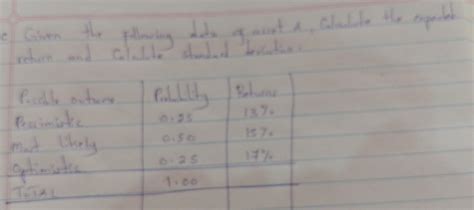 c Given the following data of asset A, Calculate the expected
return and Calculate standard deviation.
Possible outcome Probability Returns
Pessimistic 0.25 13%
Most likely 0.50 15%
Optimistic 0.25 17%
TOTAL 1.00